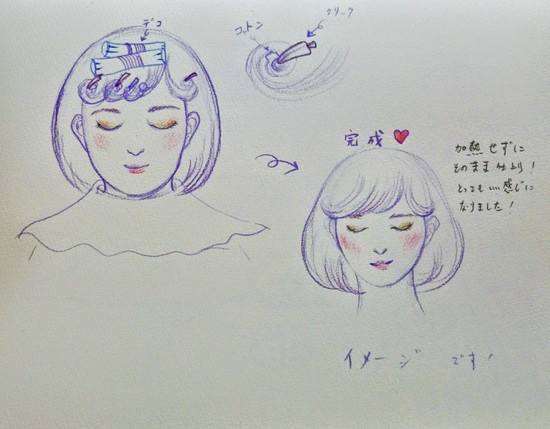 デコ
コットン
クリップ
完成
加熱せずに
そのまま仕上り！
とってもいい感じに
なりました！
イメージ です！